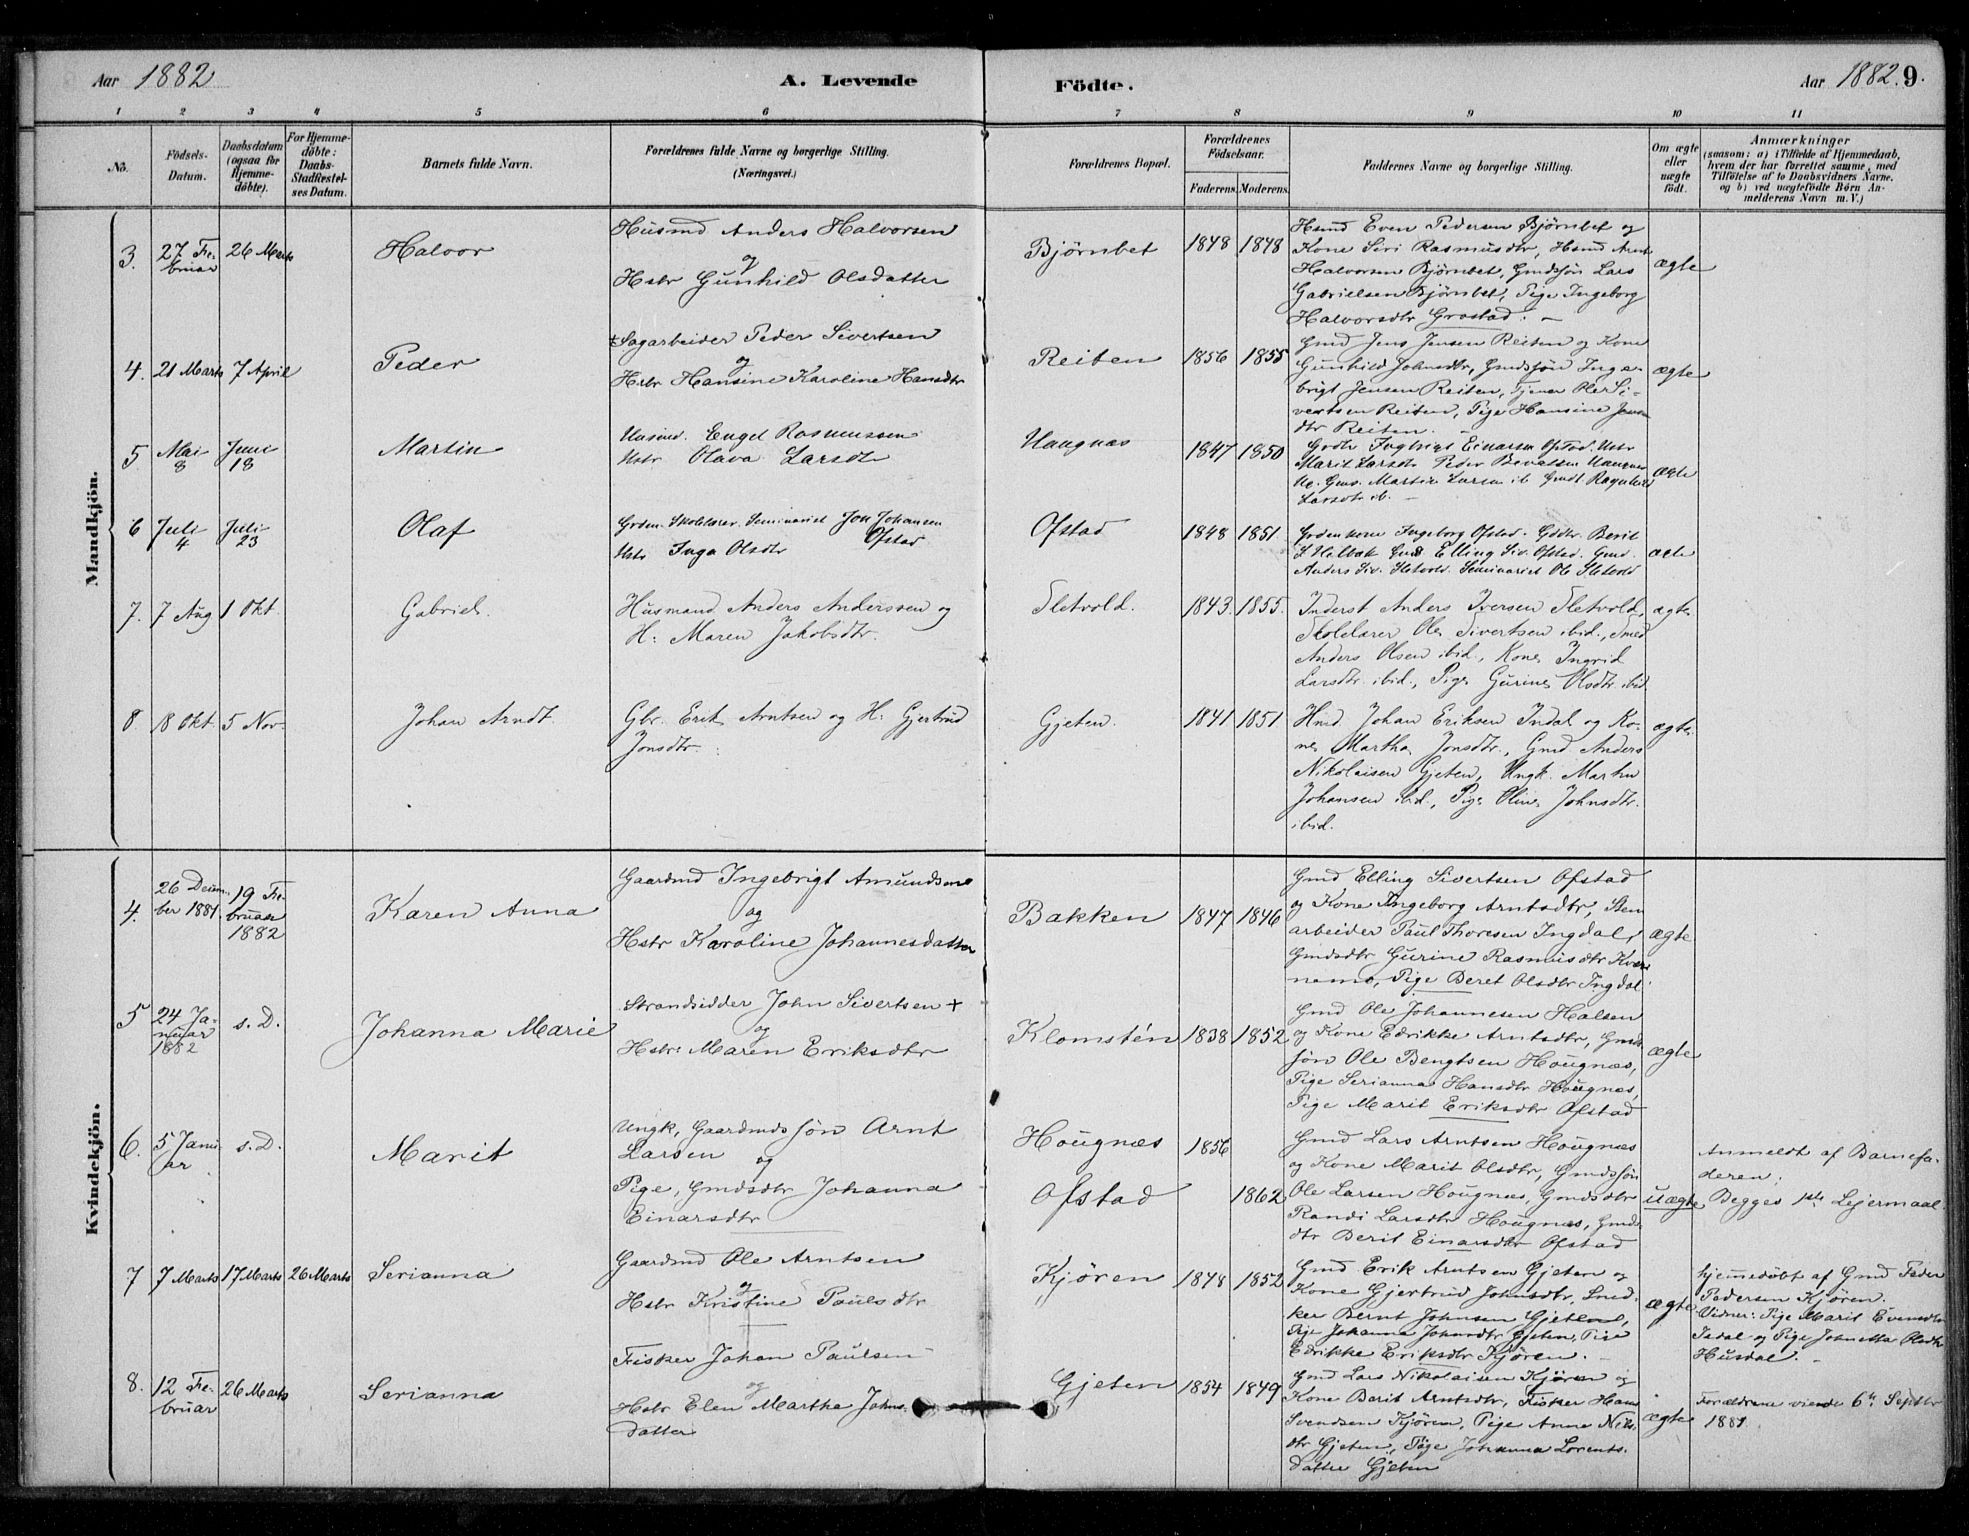 Aar 1882
A. Levende
Födte.
Aar 1882. 9.
1 2 3 4 5 6 7 8 9 10 11
No.
Födsels-
Datum.
Daabsdatum
(ogsaa for
Hjemme-
döbte).
For Hjemme-
döbte:
Daabs-
Stadfæstel-
ses Datum.
Barnets fulde Navn.
Forældrenes fulde Navne og borgerlige Stilling.
(Næringsvei.)
Forældrenes Bopæl.
Forældrenes
Födselsaar.
Faderens. Moderens.
Faddernes Navne og borgerlige Stilling.
Om ægte
eller
uægte
födt.
Anmærkninger
(saasom: a) i Tilfælde af Hjemmedaab,
hvem der har forrettet samme, med
Tilföielse af to Daabsvidners Navne,
og b) ved uægtefödte Börn An-
melderens Navn m. V.)
Mandkjön.
3. 27 Fe-
bruar
26 Marts
Halvor
Husmd Anders Halvorsen
og
Hstr Gunhild Olsdatter
Bjørnbet
1848 1848
Hsmd Even Pedersen Bjørnbet og
Kone Siri Rasmusdtr, Hsmd Arnt
Halvorsen Bjørnbet, Gmdssjön Lars
Gabrielsen Bjørnbet, Pige Ingeborg
Halvorsdtr Grostad. –
ægte
4. 21 Marts 7 April
Peder
Sagarbeider Peder Sivertsen
og
Hstr Hansine Karoline Hansdtr
Reiten
1856 1855
Gmd Jens Jensen Reiten og Kone
Gunhild Johnsdtr, Gmdssjön Inge-
brigt Jensen Reiten, Tjener Ole Si-
vertsen Reiten, Pige Hansine Jens
dtr Reiten.
ægte
5 Mai
8
Juni
18
Martin
Husmd. Engel Rasmussen
Hstr Olava Larsdtr
Haugnæs
1847 1850
Grdbr Ingbrigt Einarsen Ofstad. Hstr
Marit Larsdtr Peder
Martin Larsen ib Gmdt Ragnhild
Larsdtr ib. –
ægte
6 Juli
4
Juli
23
Olaf
Grdm. Skolelærer Seminarist Jon Johansen
Ofstad
Hstr Inga Olsdtr
Ofstad
1848 1851.
Grdmkone Ingeborg Ofstad. Gddtr. Berit
Elling Siv. Ofstad. Gmd.
Anders Siv. Sletvold. Seminarist Ole Sletvold
ægte
7. 7 Aug 1 Okt.
Gabriel.
Husmand Anders Anderssen og
H: Maren Jakobsdtr.
Sletvold.
1843. 1855.
Inderst Anders Iversen Sletvold,
Skolelærer Ole Sivertsen ibid., Smed
Anders Olsen ibid., Kone Ingrid
Larsdtr. ibid., Pige Gurine Olsdtr. ibid.
ægte.
8. 18 Okt. 5 Nov.
Johan Arndt.
Gbr. Erik Arntsen og H: Gjertrud
Jonsdtr.
Gjeten.
1841 1851
Hmd. Johan Eriksen Indal og Ko-
ne Martha Jonsdtr., Gmd Anders
Nikolaisen Gjeten, Ungk. Martin
Johansen ibid., Pige Oline Johnsdtr.
ibid.
ægte.
Kvindekjön.
4. 26 Decem-
ber 1881.
19 Fe-
bruar
1882
Karen Anna
Gaardmd Ingebrigt Amundsen
og
Hstr Karoline Johannesdatter
Bakken
1847 1846
Gmd Elling Sivertsen Ofstad
og Kone Ingeborg Arntsdtr, Sten
arbeider Paul Thoresen Ingdal,
Gmdsdtr Gurine Rasmusdtr Kver-
namo, Pige Beret Olsdtr Ingdal.
ægte
5 24 Ja-
nuar
1882
s. D.
Johanna Marie
Strandsidder John Sivertsen +
og
Hstr: Maren Eriksdtr
Klomstén
1838 1852
Gmd Ole Johannesen Halsen
og Kone Edrikke Arntsdtr, Gmds-
sjön Ole Bengtsen Hougnæs,
Pige Serianna Hansdtr Hougnæs,
Pige Marit Eriksdtr Ofstad
ægte
6. 5 Janu-
ar
s. D.
Marit
Ungk, Gaardmdssjön Arnt
Larsen
og
Pige, Gmdsdtr Johanna
Einarsdtr
Hougnæs
Ofstad
1856
1862
Gmd Lars Arntsen Hougnæs
og Kone Marit Olsdtr, Gmdssjön
Ole Larsen Hougnæs, Gmdsdtr
Randi Larsdtr Hougnæs, Gmds-
dtr Berit Einarsdtr Ofstad
uægte
Anmeldt af Barnefa-
deren.
Begges 1ste Lejermaal.
7 7 Marts 17 Marts 26 Marts
Serianna
Gaardmd Ole Arntsen
og
Hstr Kristine Paulsdtr
Kjören
1848 1852
Gmd Erik Arntsen Gjeten og
Kone Gjertrud Johnsdtr, Sned-
ker Bernt Johnsen Gjeten,
Pige Johanna Johnsdtr Gjeten, Pige
Edrikke Eriksdtr Kjören. –
ægte
hjemmedöbt af Gmd Peder
Pedersen Kjören.
Vidner: Pige Marit Evensdtr
Indal og Pige Johnetta Olsdtr
Husdal. –
8. 12 Fe-
bruar
26 Marts
Serianna
Fisker Johan Paulsen
og
Hstr Elen Martha Johns-
datter
Gjeten
1854 1849
Gmd Lars Nikolaisen Kjören og
Kone Berit Arntsdtr, Fisker Hans
Svendsen Kjören, Pige Anne Nils-
dtr Gjeten, Pige Johanna Lorents-
datter Gjeten
ægte
Forældrene viende 6te Septbr
1881.